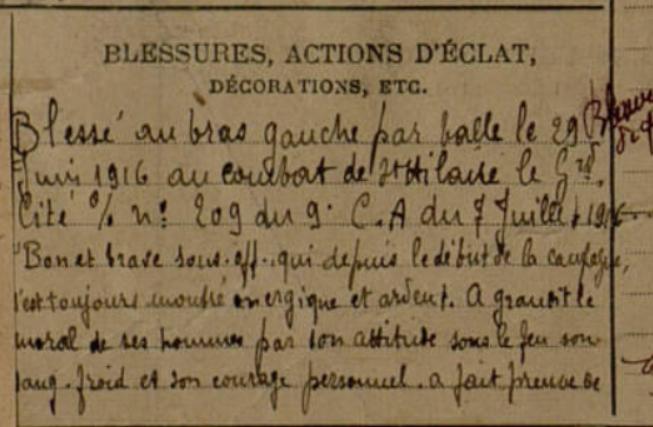 BLESSURES, ACTIONS D'ÉCLAT,
DÉCORATIONS, ETC.
Blessé au bras gauche par balle le 29
Juin 1916 au combat de St Hilaire le Grd.
Cité % n: 209 du 9e C.A du 7 Juillet 1916
"Bon et brave sous-off. qui depuis le début de la campagne,
s'est toujours montré énergique et ardent. A grandit le
moral de ses hommes par son attitude sous le feu son
sang-froid et son courage personnel. a fait preuve de